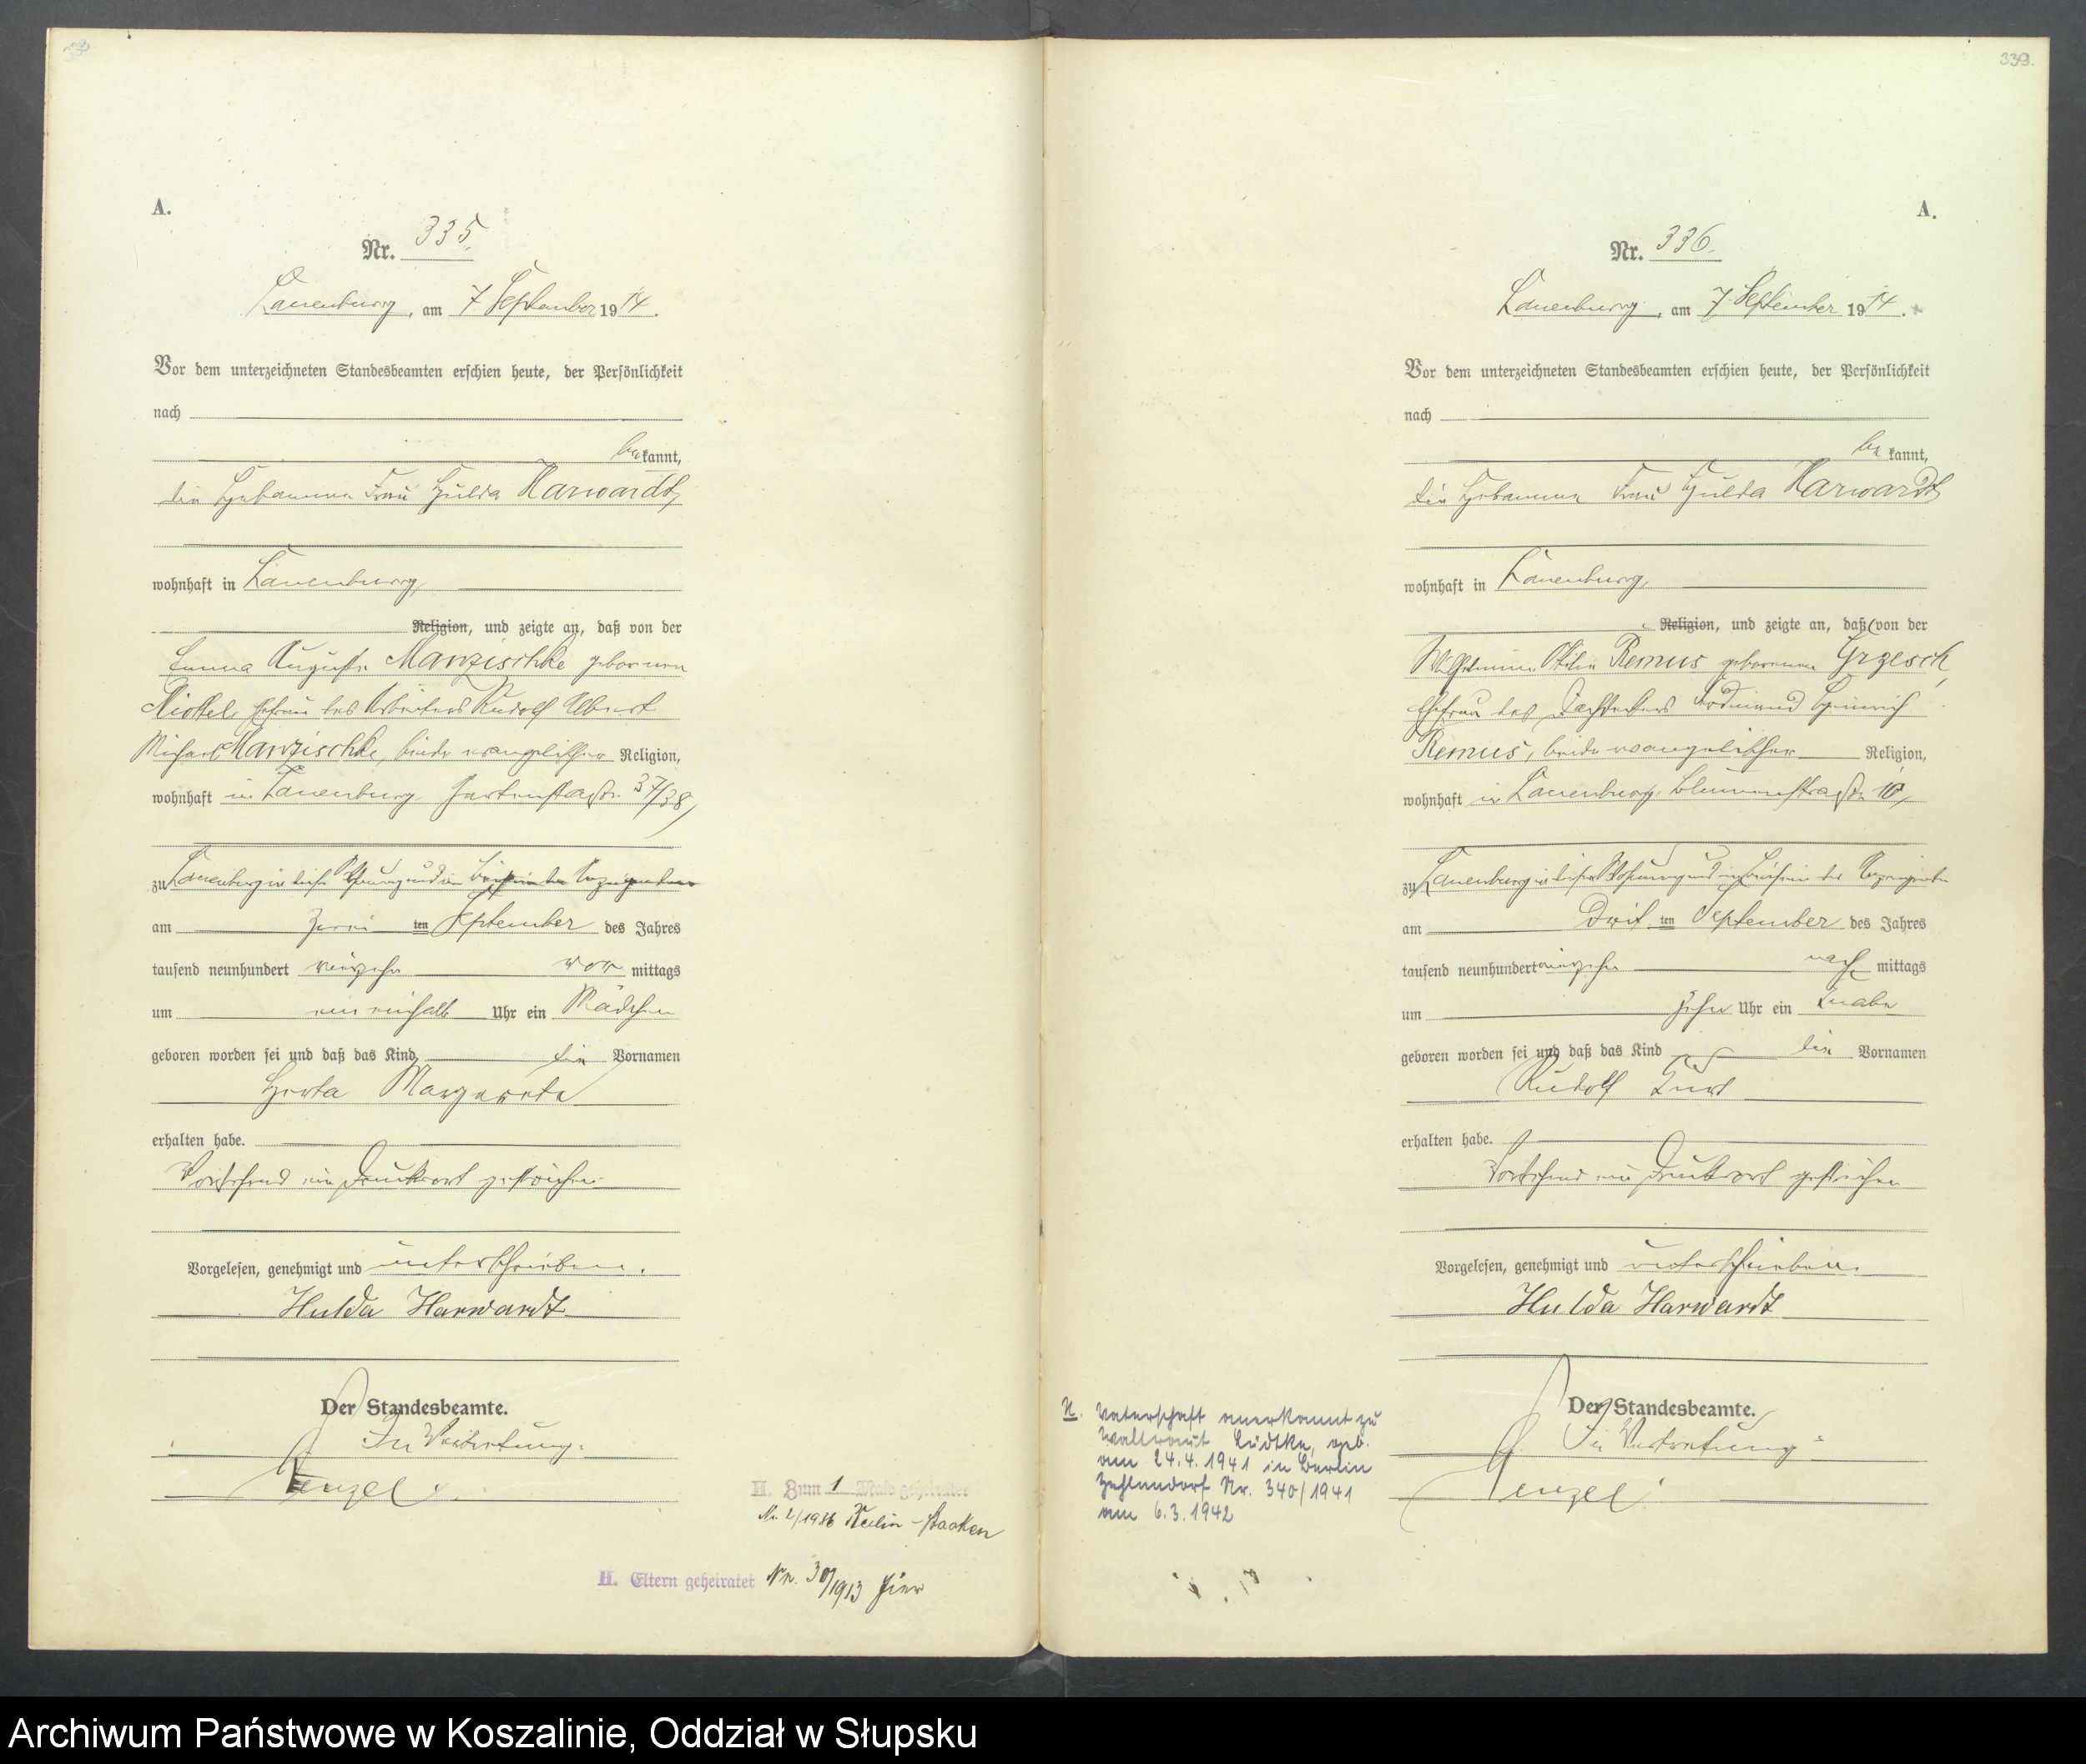 338
A.
Nr. 335.
Lauenburg, am 7. September 1914.
Vor dem unterzeichneten Standesbeamten erschien heute, der Persönlichkeit
nach
be kannt,
die Hebamme Frau Hulda Harwardt,
wohnhaft in Lauenburg,
Religion, und zeigte an, daß von der
Emma Auguste Manzischke geborenen
Ehefrau des Arbeiters Rudolf Albert
Michael Manzischke, beide evangelischer Religion,
wohnhaft in Lauenburg, Gartenstraße 37/38,
zu Lauenburg in dieser Wohnung und in Beisein der Anzeigenden
am zwei ten September des Jahres
tausend neunhundert vierzehn vor mittags
um ein einhalb Uhr ein Mädchen
geboren worden sei und daß das Kind die Vornamen
Herta Margarete
erhalten habe.
Vorstehend ein Druckwort gestrichen.
Vorgelesen, genehmigt und unterschrieben.
Hulda Harwardt
Der Standesbeamte.
In Vertretung.
Penzel.
H. Zum 1 Male geheiratet
Nr. 2/1936 Berlin-Staaken
H. Eltern geheiratet Nr. 30/1913 hier
339.
A.
Nr. 336.
Lauenburg, am 7. September 1914.
Vor dem unterzeichneten Standesbeamten erschien heute, der Persönlichkeit
nach
be kannt,
die Hebamme Frau Hulda Harwardt,
wohnhaft in Lauenburg,
Religion, und zeigte an, daß von der
Wilhelmine Ottilie Remus geborenen Grzesch,
Ehefrau des Dachdeckers Ferdinand Heinrich
Remus, beide evangelischer Religion,
wohnhaft in Lauenburg, Blumenstraße 10,
zu Lauenburg in dieser Wohnung und in Beisein der Anzeigenden
am dritt ten September des Jahres
tausend neunhundert vierzehn nach mittags
um zehn Uhr ein Knabe
geboren worden sei und daß das Kind die Vornamen
Rudolf Kurt
erhalten habe.
Vorstehend ein Druckwort gestrichen
Vorgelesen, genehmigt und unterschrieben.
Hulda Harwardt
Der Standesbeamte.
In Vertretung.
Penzel.
V. Vaterschaft anerkannt zu
Waltraut Lüdtke, geb.
am 24.4.1941 in Berlin
Zehlendorf Nr. 340/1941
am 6.3.1942
Archiwum Państwowe w Koszalinie, Oddział w Słupsku